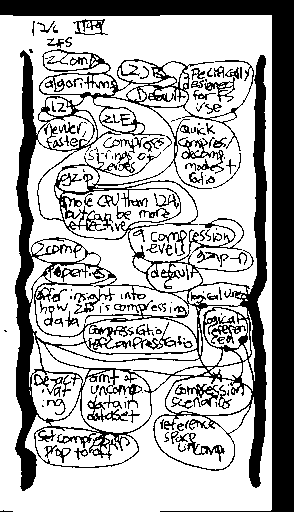 12/6
ZFS
2 Comp
algorithms
LZJB
Default
Specifically
designed
for FS
use
LZ4
newer,
faster
ZLE
Compress
strings of
zeroes
quick
compress/
decomp
modest
ratio
gzip
more CPU than LZ4
but can be more
effective
9 compression
levels
gzip-n
default
2 comp
properties
offer insight into
how ZFS is compressing
data
compressratio/
refcompressratio
logical used
logical
referen
ced
Deact
ivat
ing
amt of
uncomp.
data in
dataset
compression
scenarios
set compression
prop to off
reference
space
uncomp